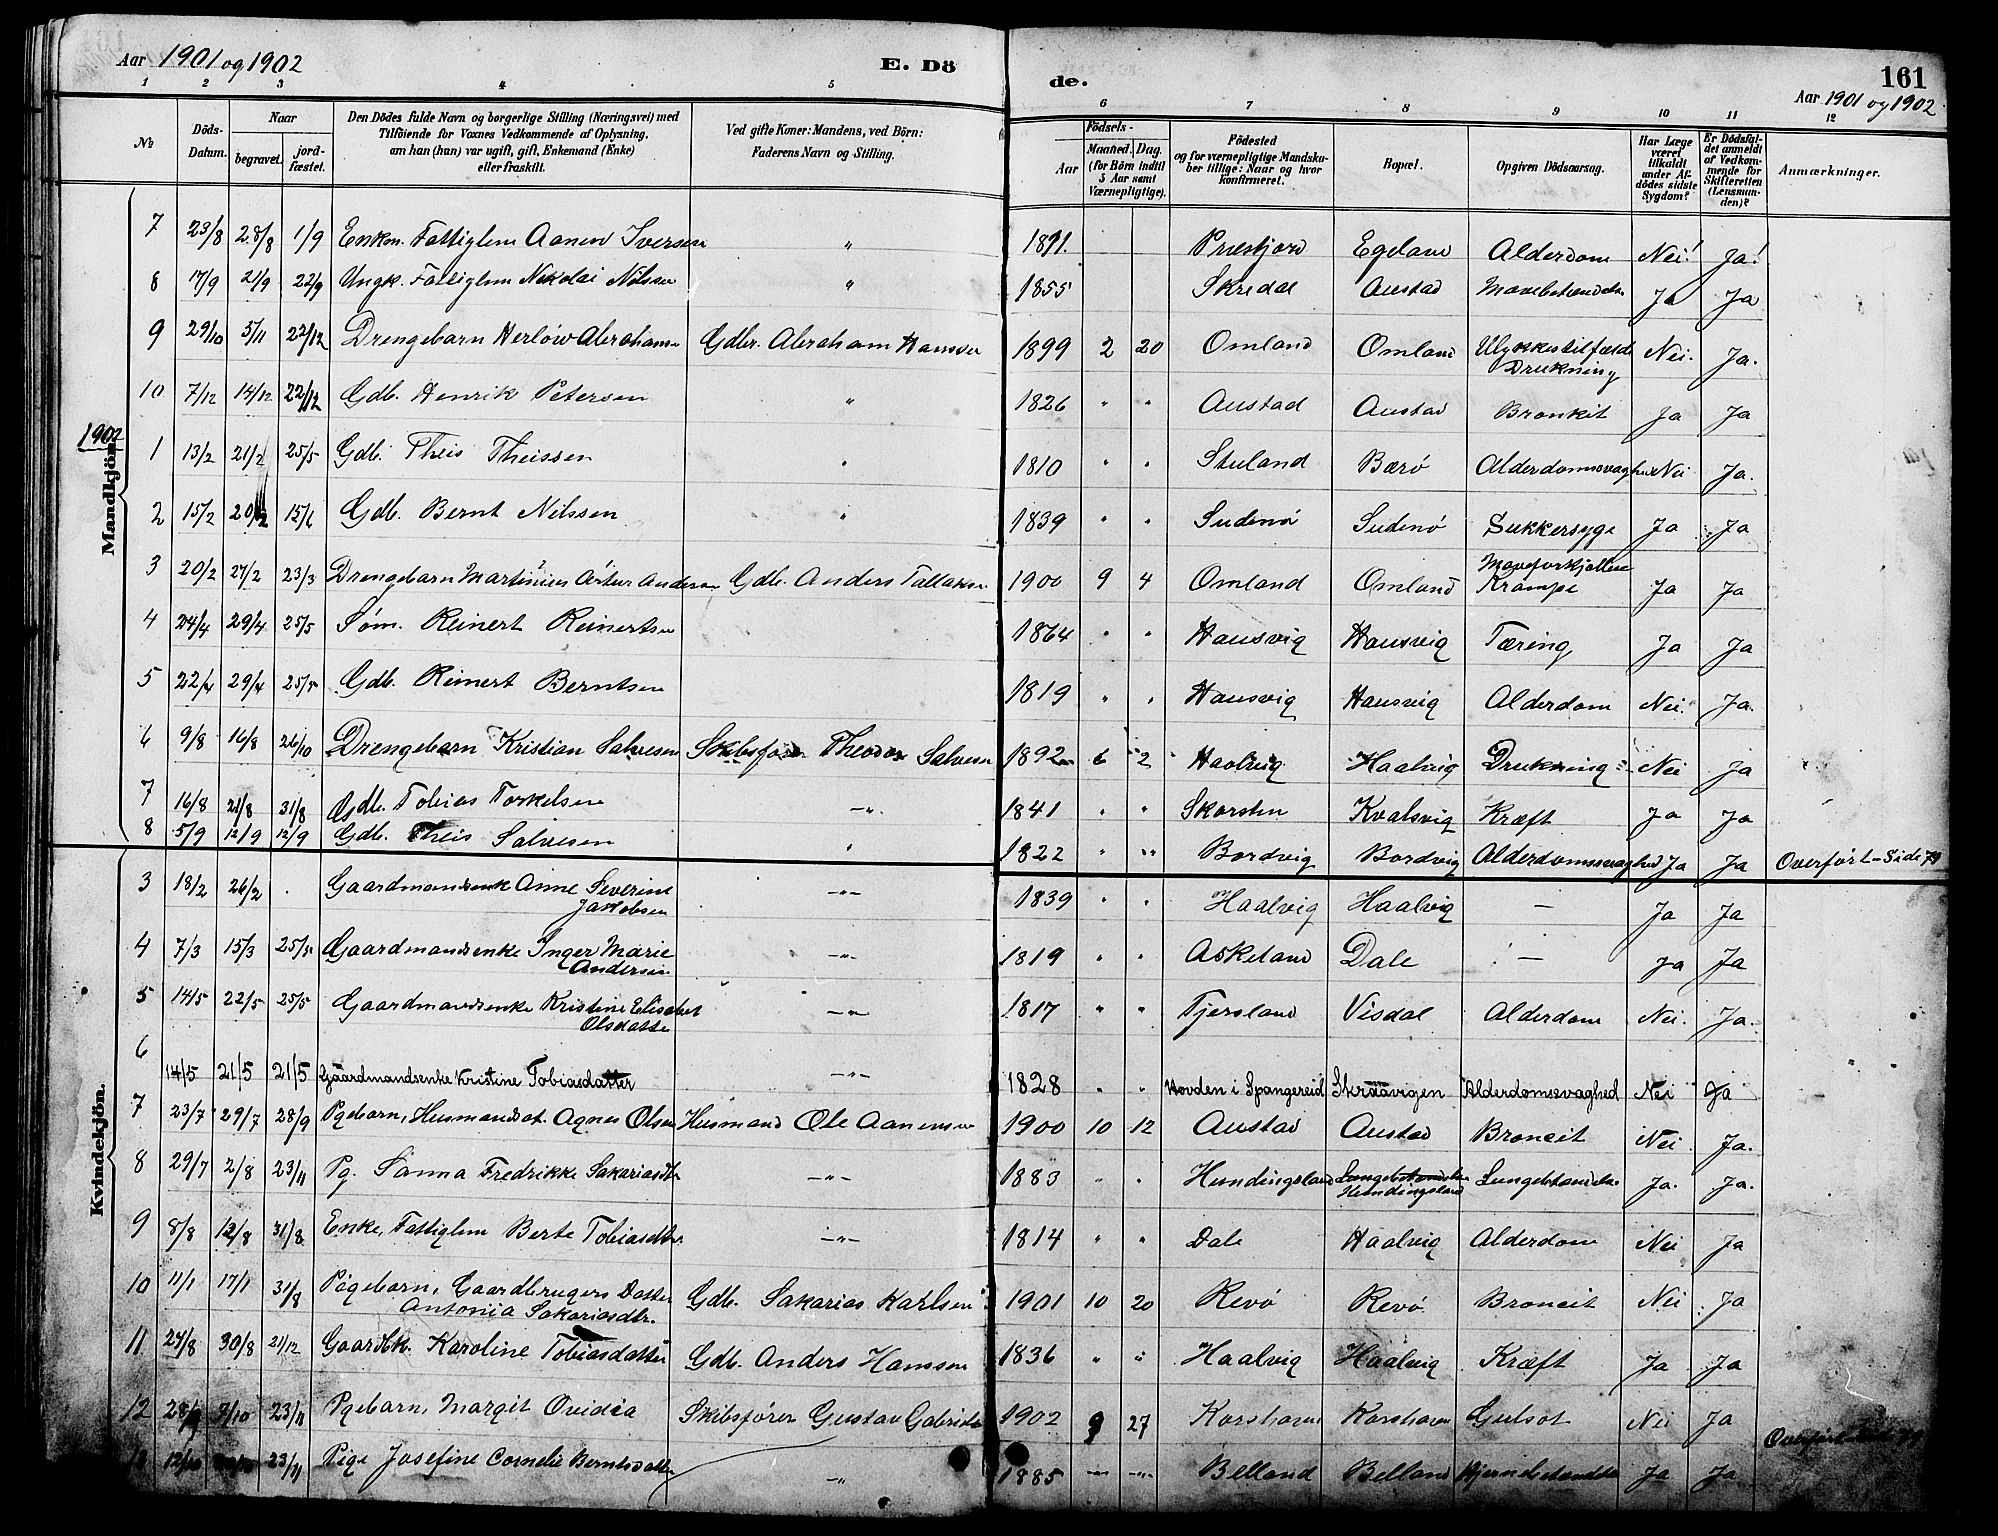 Aar 1901 og 1902
E. Dö
de.
161
Aar 1901 og 1902
1 2 3 4 5 6 7 8 9 10 11 12
№
Döds-Datum.
Naar
begravet.
jordfæstet.
Den Dödes fulde Navn og borgerlige Stilling (Næringsvei) med
Tilföiende for Voxnes Vedkommende af Oplysning,
om han (hun) var ugift, gift, Enkemand (Enke)
eller fraskilt.
Ved gifte Koner: Mandens, ved Börn:
Faderens Navn og Stilling.
Födsels-
Aar
Maaned. Dag.
(for Börn indtil
5 Aar samt
Værnepligtige).
Födested
og for værnepligtige Mandsku-
ber tillige: Naar og hvor
konfirmeret.
Bopæl.
Opgiven Dödsaarsag.
Har Læge
været
tilkaldt
under Af-
dödes sidste
Sygdom?
Er Dödsfal-
det anmeldt
af Vedkom-
mende for
Skifteretten
(Lensman-
den)?
Anmærkninger.
Mandkjön.
7 23/8 28/8 1/9 Enkm. Fattiglem Aanen Iversen " 1821. Præstjord Egeland Alderdom Nei! Ja!
8 17/9 21/9 22/9 Ungk. Fattiglem Nikolai Nilssen " 1855 Skredal Austad Mavebetændelse Ja Ja
9 29/10 3/11 22/12 Drengebarn Herlöw Abrahamsen Gdbr. Abraham Hanssen 1899 2 20 Omland Omland Ulykkestilfælde Drukning Nei. Ja.
10 7/12 14/12 22/12 Gdb. Henrik Petersen " 1826 " " Austad Austad Bronkit Ja Ja
1902
1 13/2 21/2 25/5 Gdb. Theis Theissen " 1810 " " Stuland Bærö Alderdomssvaghed Nei Ja.
2 15/2 20/2 15/6 Gdb. Bernt Nilssen " 1839 " " Sudenö Sudenö Sukkersyge Ja Ja
3 20/2 27/2 23/3 Drengebarn Martinius Artur Andersen Gdb. Anders Tallaksen 1900 9 4 Omland Omland Maveforkjölelse Krampe Ja Ja
4 24/4 29/4 25/5 Söm. Reinert Reinertsen 1864 " " Hausvig Hausvig Tæring Ja Ja
5 22/4 29/4 25/5 Gdb. Reinert Berntsen 1819 " " Hausvig Hausvig Alderdom Nei. Ja.
6 9/8 16/8 26/10 Drengebarn Kristian Salvesen Skibsförer Theodor Salvesen 1892 6 2 Haalvig Haalvig Drukning Nei Ja
7 16/8 21/8 31/8 Gdb. Tobias Torkelsen –"– 1841 " " Skarsten Kvalsvig Kræft Ja Ja
8 5/9 12/9 12/9 Gdb. Theis Salvesen " 1822 " " Bordvig Bordvig Alderdomssvaghed Ja Ja Overfört – Side 79
Kvindekjön.
3 18/2 26/2 . Gaardmandsenk Anne Severine Jakobsen –"– 1839 " " Haalvig Haalvig – Ja Ja
4 7/3 15/3 25/5 Gaardmandsenke Inger Marie Andersen –"– 1819 " " Askeland Dale – Ja Ja
5 14/5 22/5 25/5 Gaardmandsenke Kristine Elisabet Olsdatte –"– 1817 " " Tjersland Visdal Alderdom Nei. Ja.
6 14/5 21/5 21/5 Gaardmandsenke Kristine Tobiasdatter –"– 1828 " " Hovden i Spangereid Skraavigen Alderdomssvaghed Nei Ja
7 23/7 29/7 28/9 Pgebarn, Husmandsdt. Agnes Olsen Husmand Ole Aanensen 1900 10 12 Austad Austad Broncit Nei Ja.
8 29/7 2/8 23/11 Pg. Sanna Fredrikke Sakariasdtr –"– 1883 " " Hundingsland Lungebetændelse Hundingsland Lungebetændelse Ja. Ja.
9 8/8 12/8 31/8 Enke, Fattiglem Berte Tobiasdtr. –"– 1814 " " Dale Haalvig Alderdom Nei Ja
10 11/1 17/1 31/8 Pigebarn, Gaardbrugers Datter Antonia Sakariasdtr. Gdb. Sakarias Karlsen 1901 10 20 Revö Revö Broncit Nei Ja
11 24/8 30/8 21/12 Gaardbk. Karoline Tobiasdatter Gdb. Anders Hanssen 1836 " " Haalvig Haalvig Kræft Ja Ja
12 28/9 3/10 23/11 Pgebarn, Margit Ovidia Skibsförer Gustav Gabrielsen 1902 9 27 Korshavn Korshavn Gulsot Nei Ja
12/10 23/11 Pige Josefine Cornelie Berntsdatter –"– 1885 –"– –"– Belland Belland Hjernebetændelse Ja Ja